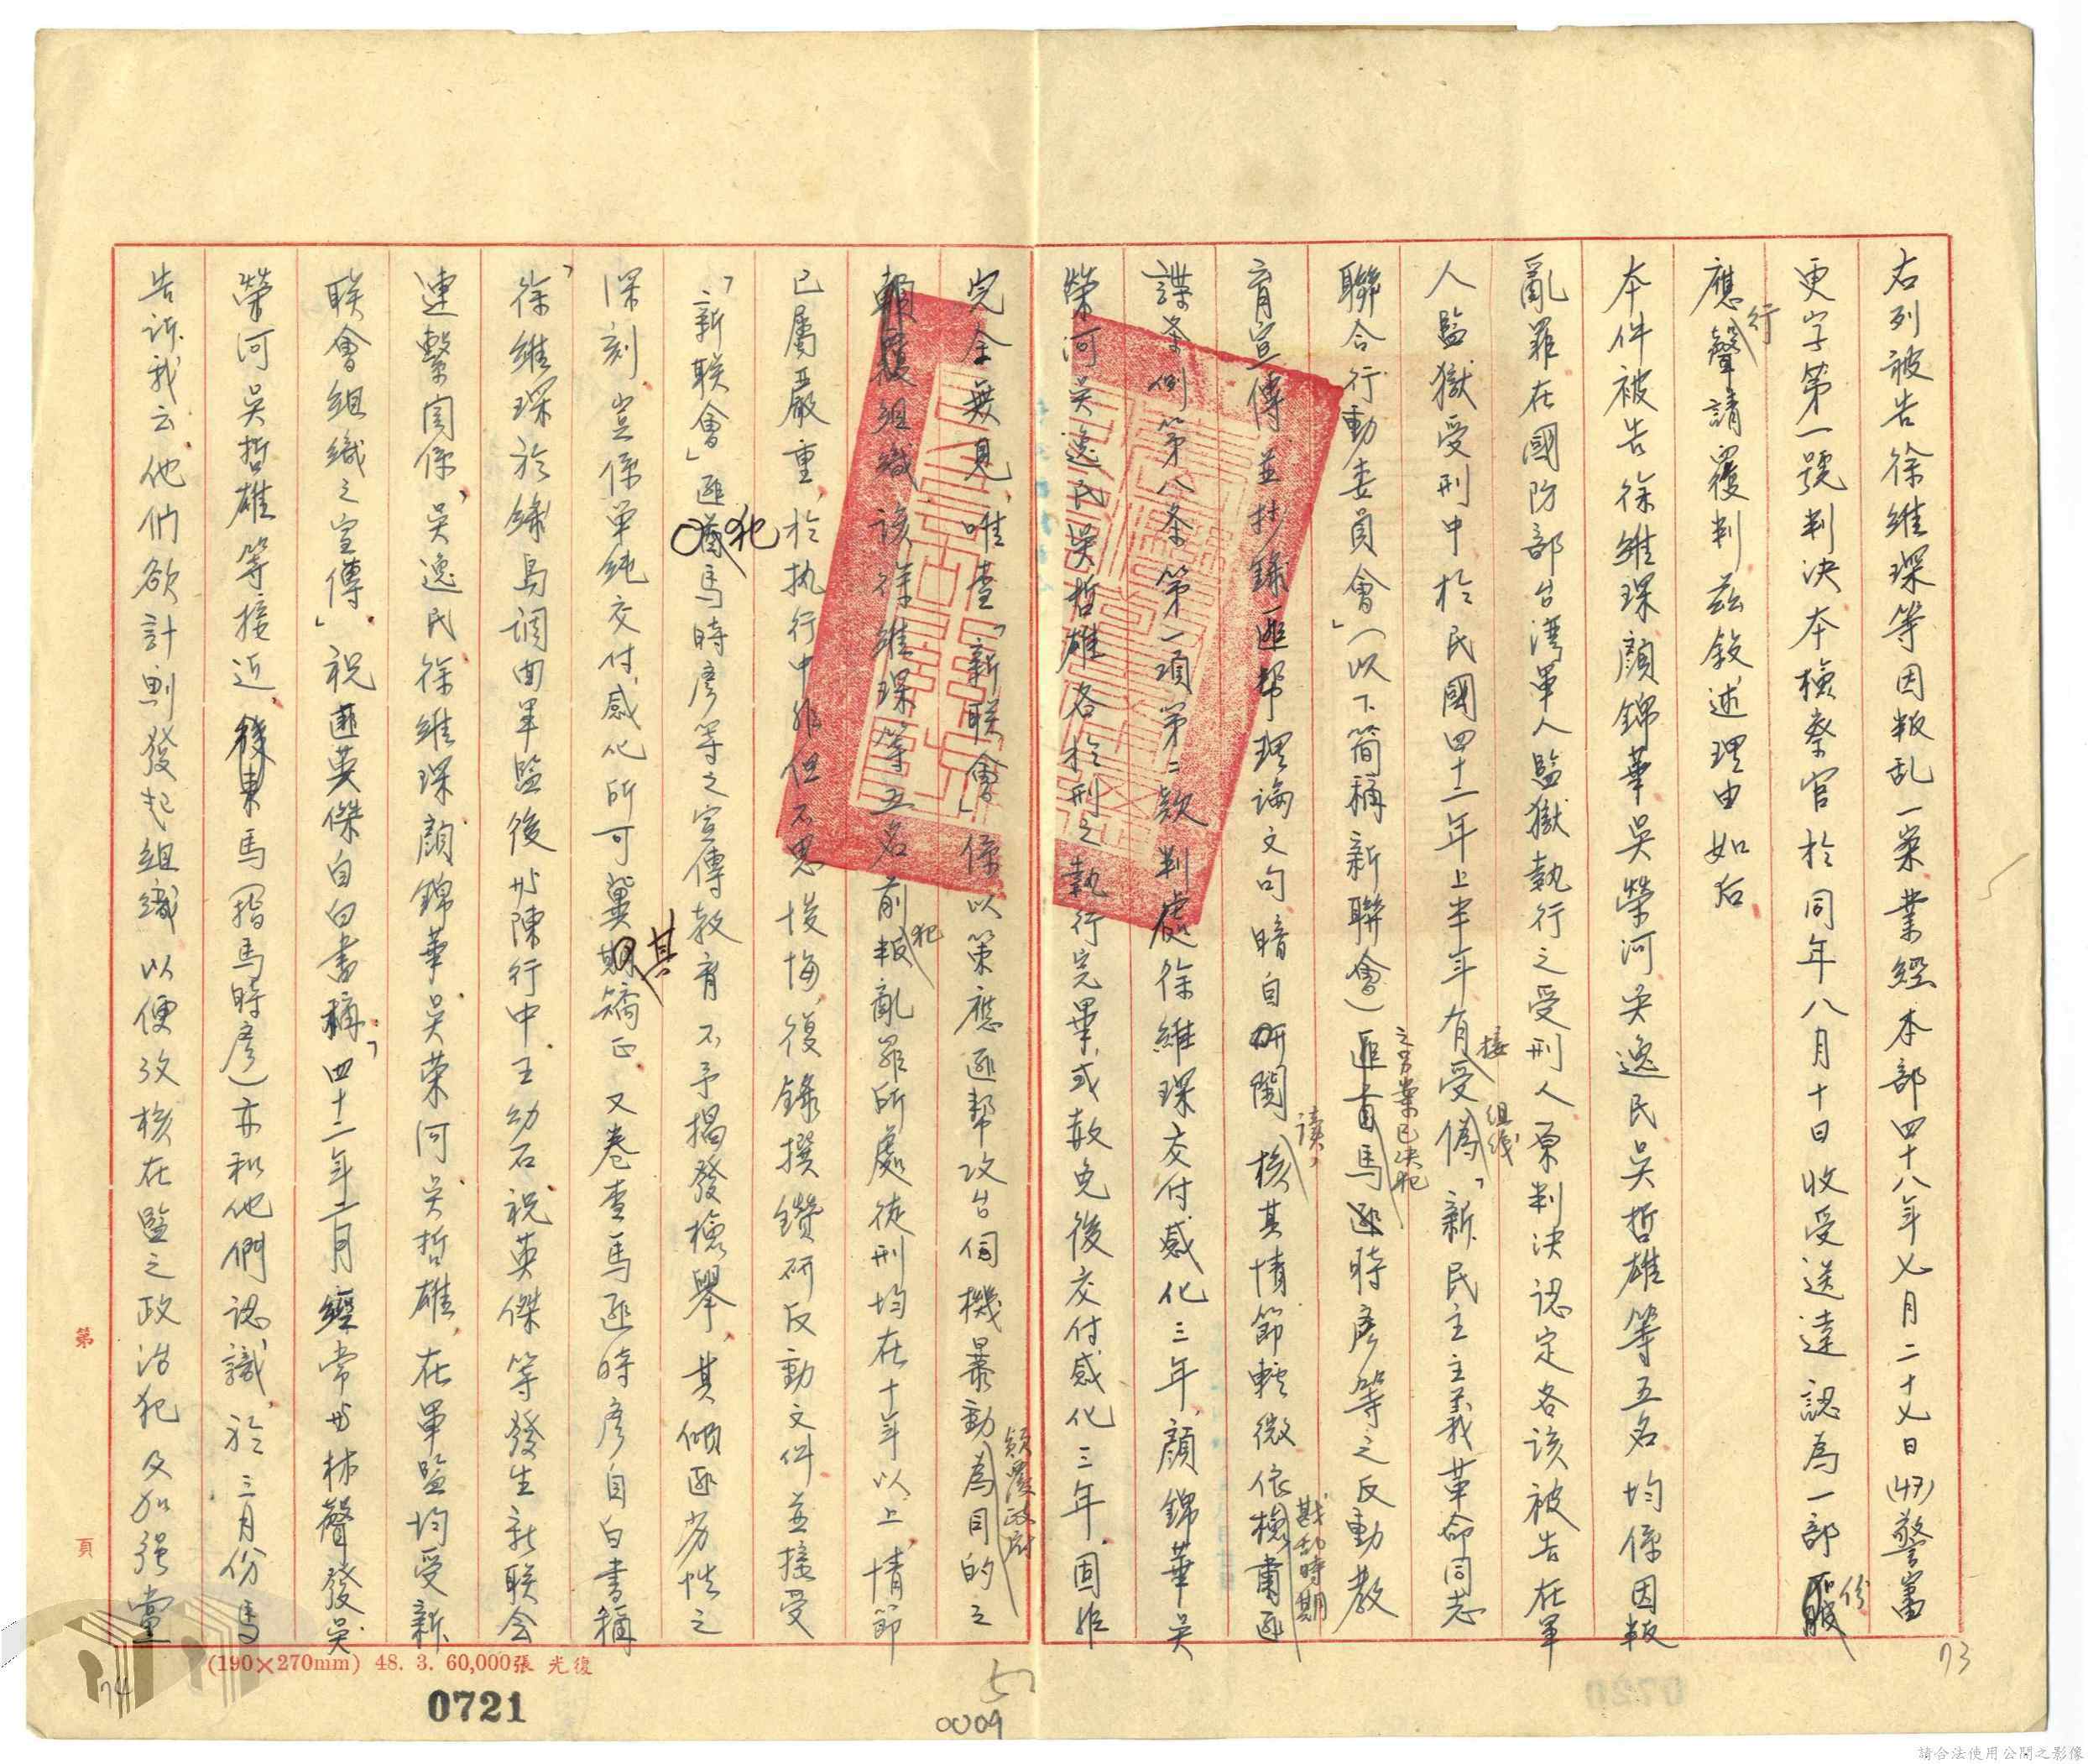 右列被告徐維琛等因叛乱一案業經本部四十八年七月二十七日(47)警審
更字第一號判決本檢察官於同年八月十日收受送達認為一部份
應行聲請覆判茲敘述理由如后
本件被告徐維琛顏錦華吳榮河吳逸民吳哲雄等五名均係因叛
亂罪在國防部台灣軍人監獄執行之受刑人原判決認定各該被告在軍
人監獄受刑中於民國四十二年上半年有接受偽組織「新民主主義革命同志
聯合行動委員會」(以下簡稱新聯會)匪之另案已決犯馬時彥等之反動教
育宣傳並抄錄匪幫理論文句暗自研閱讀,核其情節輕微依戡亂時期檢肅匪
諜条例第八条第一項第二款判處徐維琛交付感化三年,顏錦華吳
榮河吳逸民吳哲雄各於刑之執行完畢或赦免後交付感化三年固非
完全無見,唯查「新联會」係以策應匪幫攻台伺機暴動顛覆政府為目的之
顛覆組織該徐維琛等五名前犯叛亂罪所處徒刑均在十年以上,情節
已屬嚴重,於执行中非但不思悛悔復錄撰鑽研反動文件並接受
「新联會」匪犯馬時彥等之宣傳教育不予揭發檢舉,其傾匪劣性之
深刻豈係单純交付感化所可冀其矯正又卷查馬匪時彥自白書稱
「徐維琛於綠島調回軍監後與陳行中王幼石祝英傑等發生新联会
連繫関係」吳逸民徐維琛顏錦華吳榮河吳哲雄,在軍監均受新
联會組織之宣傳」,祝匪英傑自白書稱「四十二年二月經常與林聲發吳
榮河吳哲雄等接近,後來馬(指馬時彥)亦和他們認識,於三月份馬
告訴我云他們欲計劃發起組織以便攷核在監之政治犯及加強黨
第 頁
(190×270mm) 48. 3. 60,000張 光復
0721
0009
73
74
請合法使用公開之影像